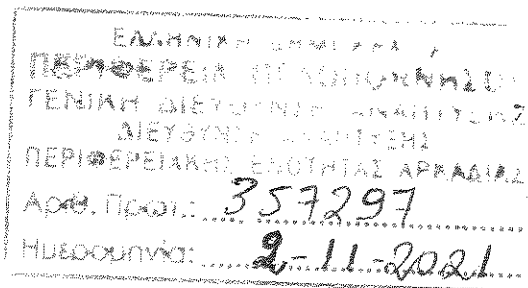 ΕΛΛΗΝΙΚΗ ΔΗΜΟΚΡΑΤΙΑ
ΠΕΡΙΦΕΡΕΙΑ ΠΕΛΟΠΟΝΝΗΣΟΥ
ΓΕΝΙΚΗ ΔΙΕΥΘΥΝΣΗ ΑΝΑΠΤΥΞΗΣ
ΔΙΕΥΘΥΝΣΗ ΑΝΑΠΤΥΞΗΣ
ΠΕΡΙΦΕΡΕΙΑΚΗΣ ΕΝΟΤΗΤΑΣ ΑΡΚΑΔΙΑΣ
Αριθ. Πρωτ.: 357297
Ημερομηνία: 2-11-2021